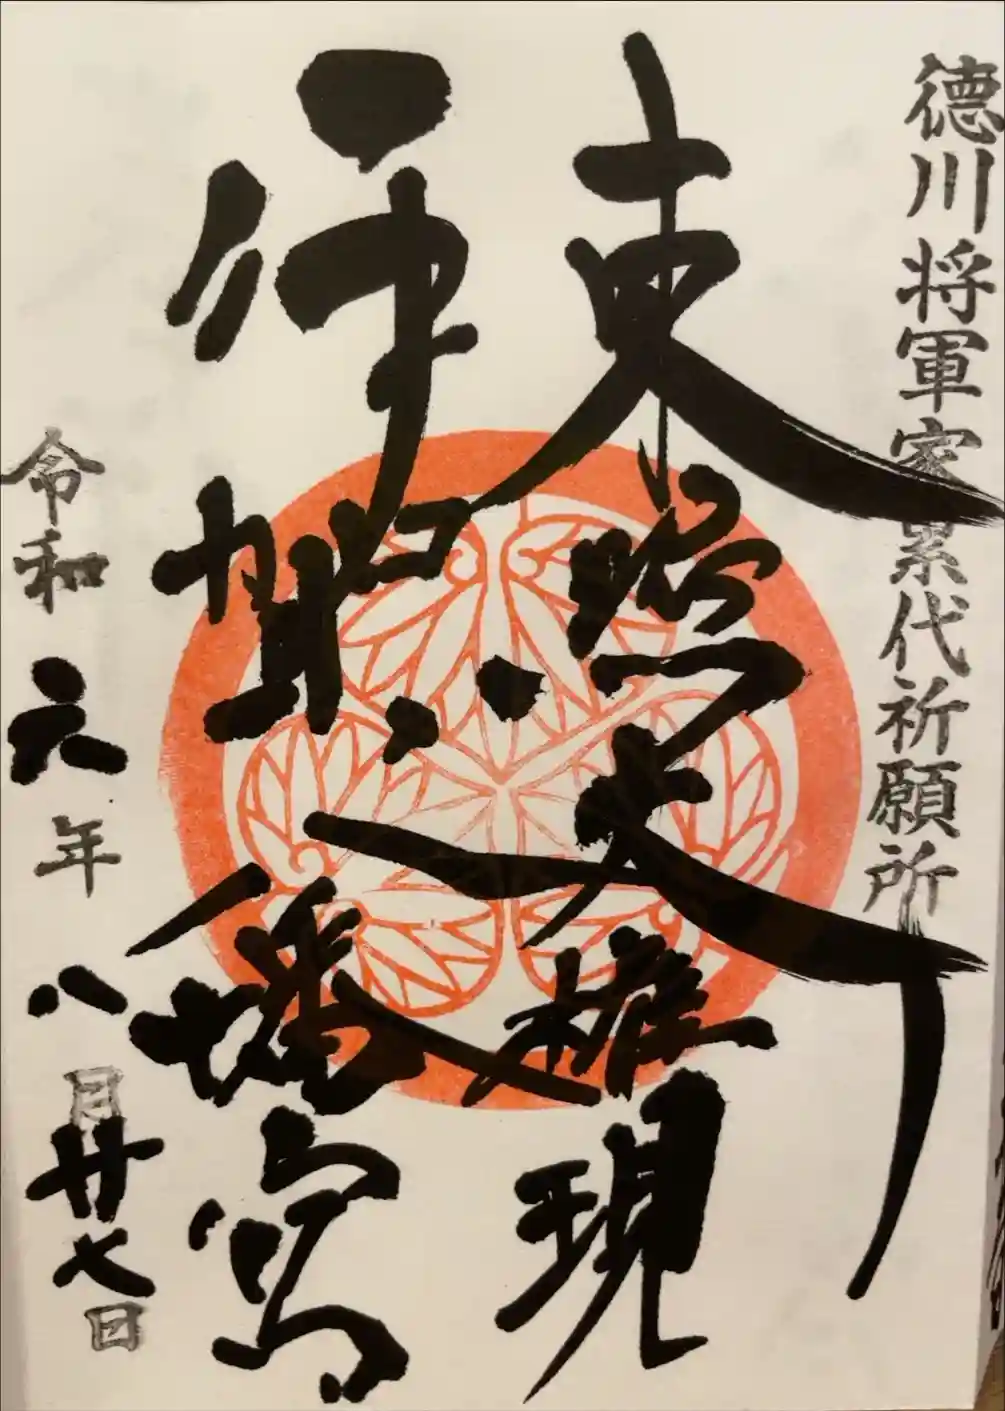 徳川将軍家累代祈願所
東照大権現
伊賀八幡宮
令和六年八月廿七日